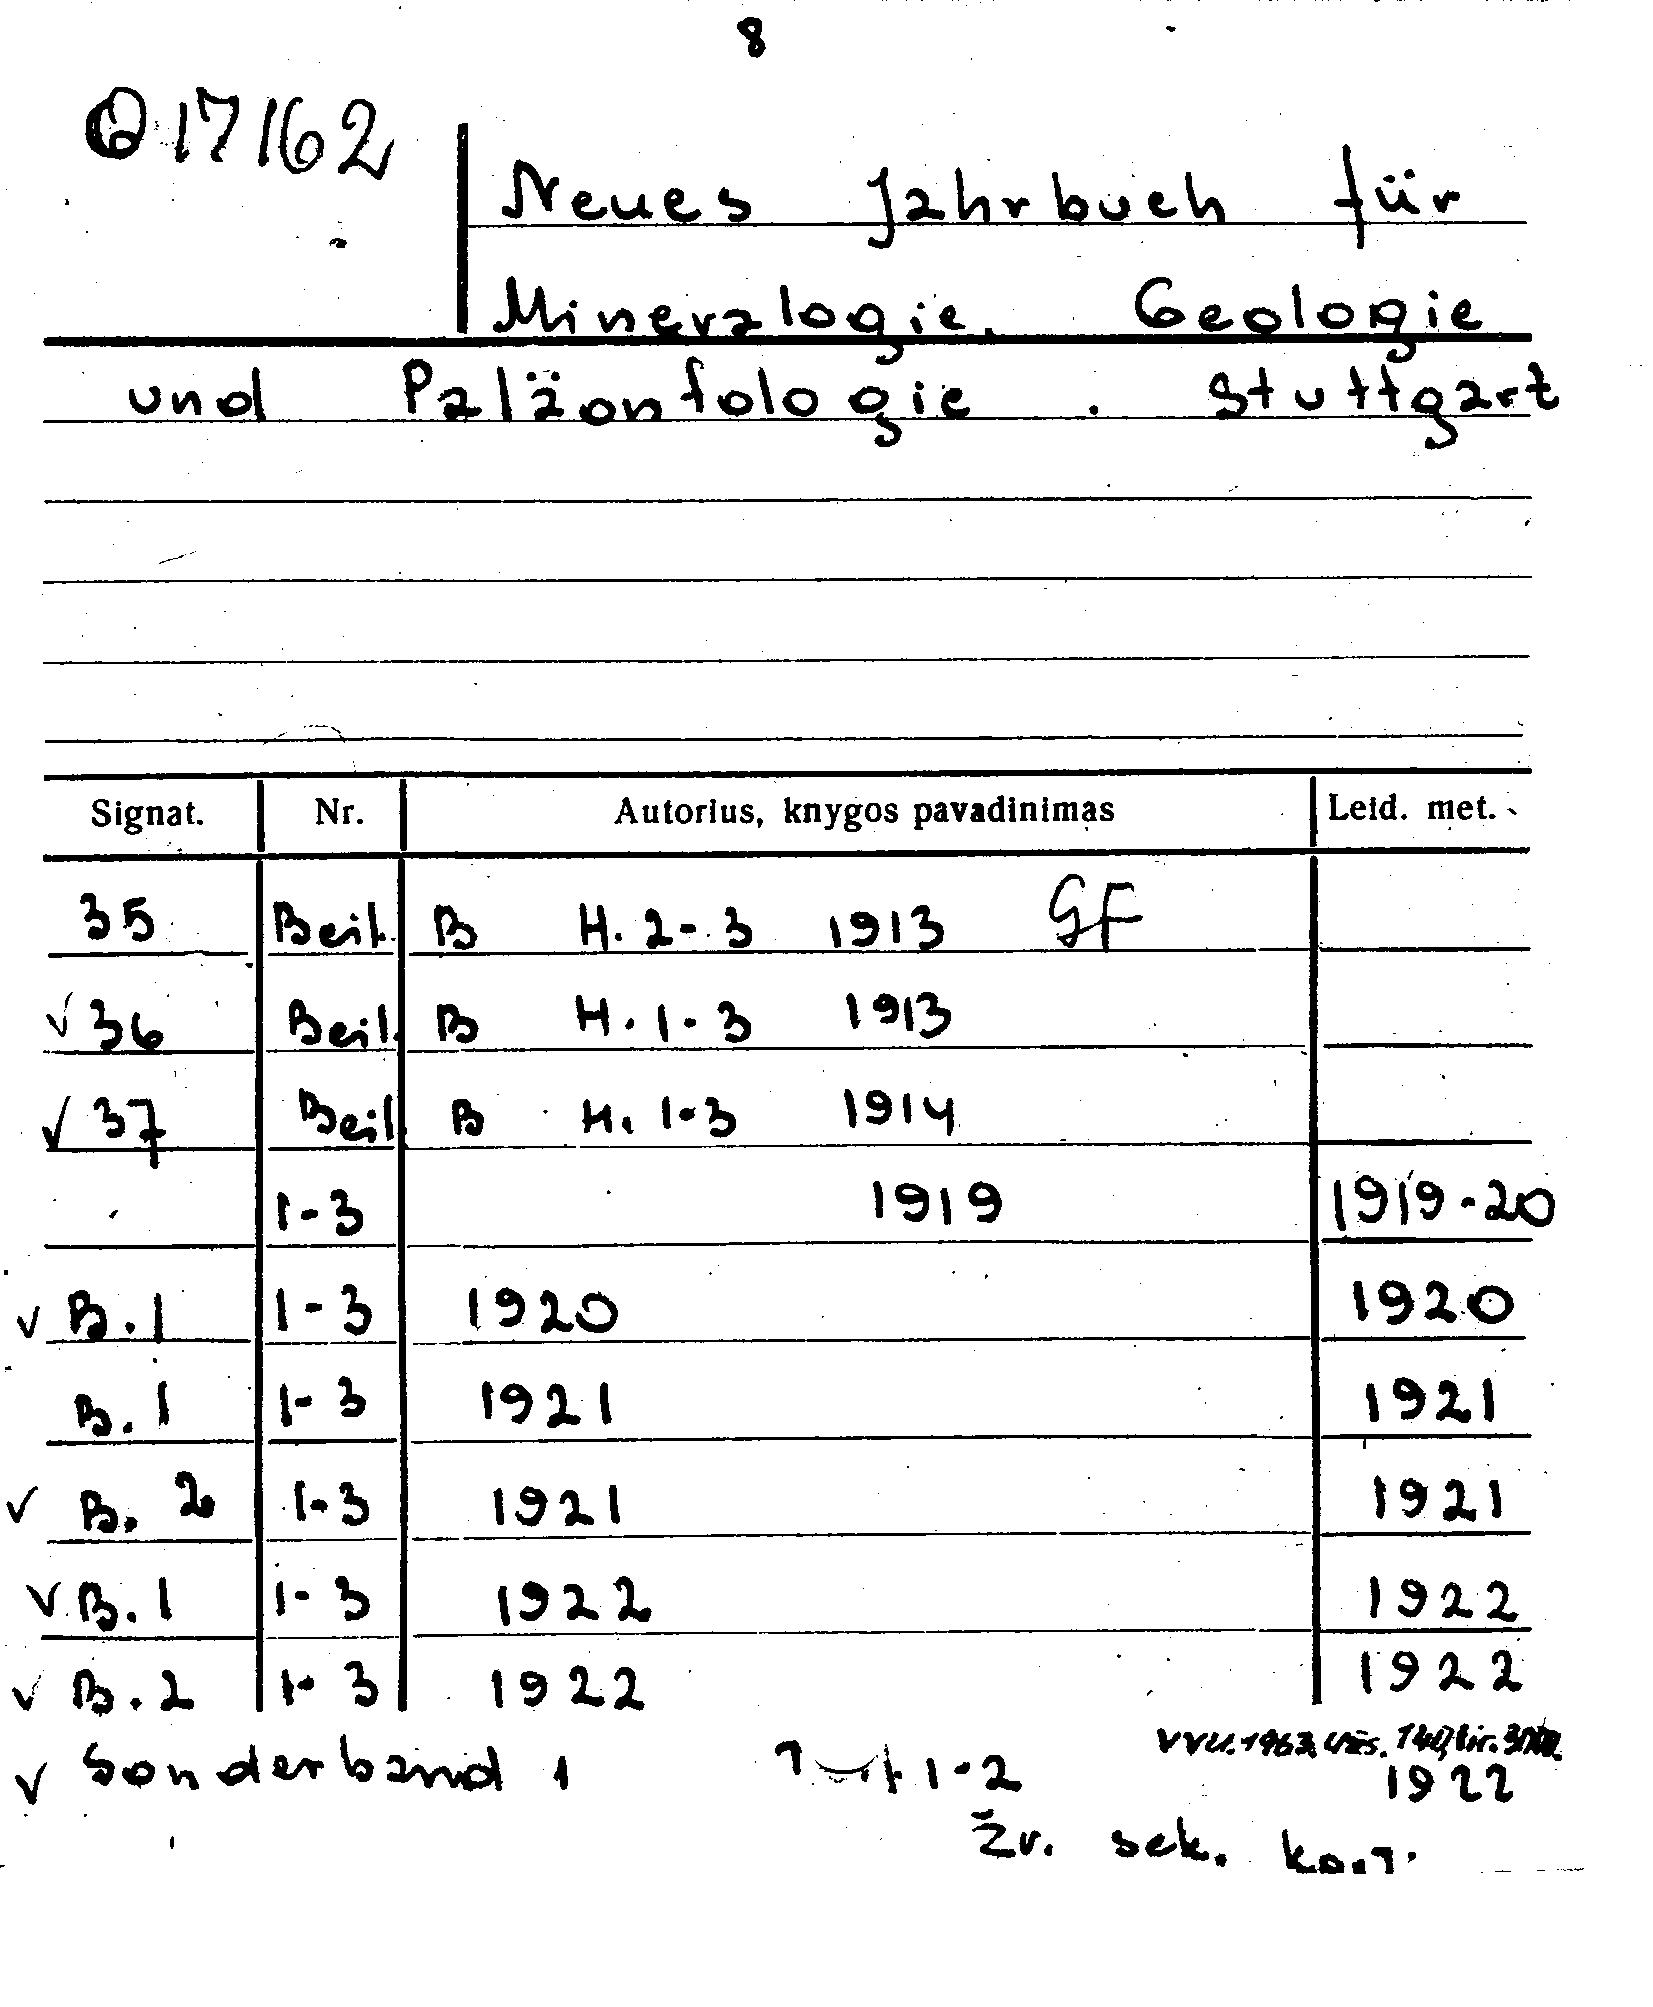 8
17162
Neues Jahrbuch für
Mineralogie. Geologie
und Paläontologie. Stuttgart
Signat. Nr. Autorius, knygos pavadinimas Leid. met.
35 Beil. B H. 2-3 1913 GF
√ 36 Beil. B H. 1-3 1913
√ 37 Beil. B H. 1-3 1914
1-3 1919 1919-20
√ B. 1 1-3 1920 1920
B. 1 1-3 1921 1921
√ B. 2 1-3 1921 1921
√ B. 1 1-3 1922 1922
√ B. 2 1-3 1922 1922
VVU. 1963. Užs. 1449 tir. 
√ Sonderband 1 1-2 1922
Žr. sek. kort.